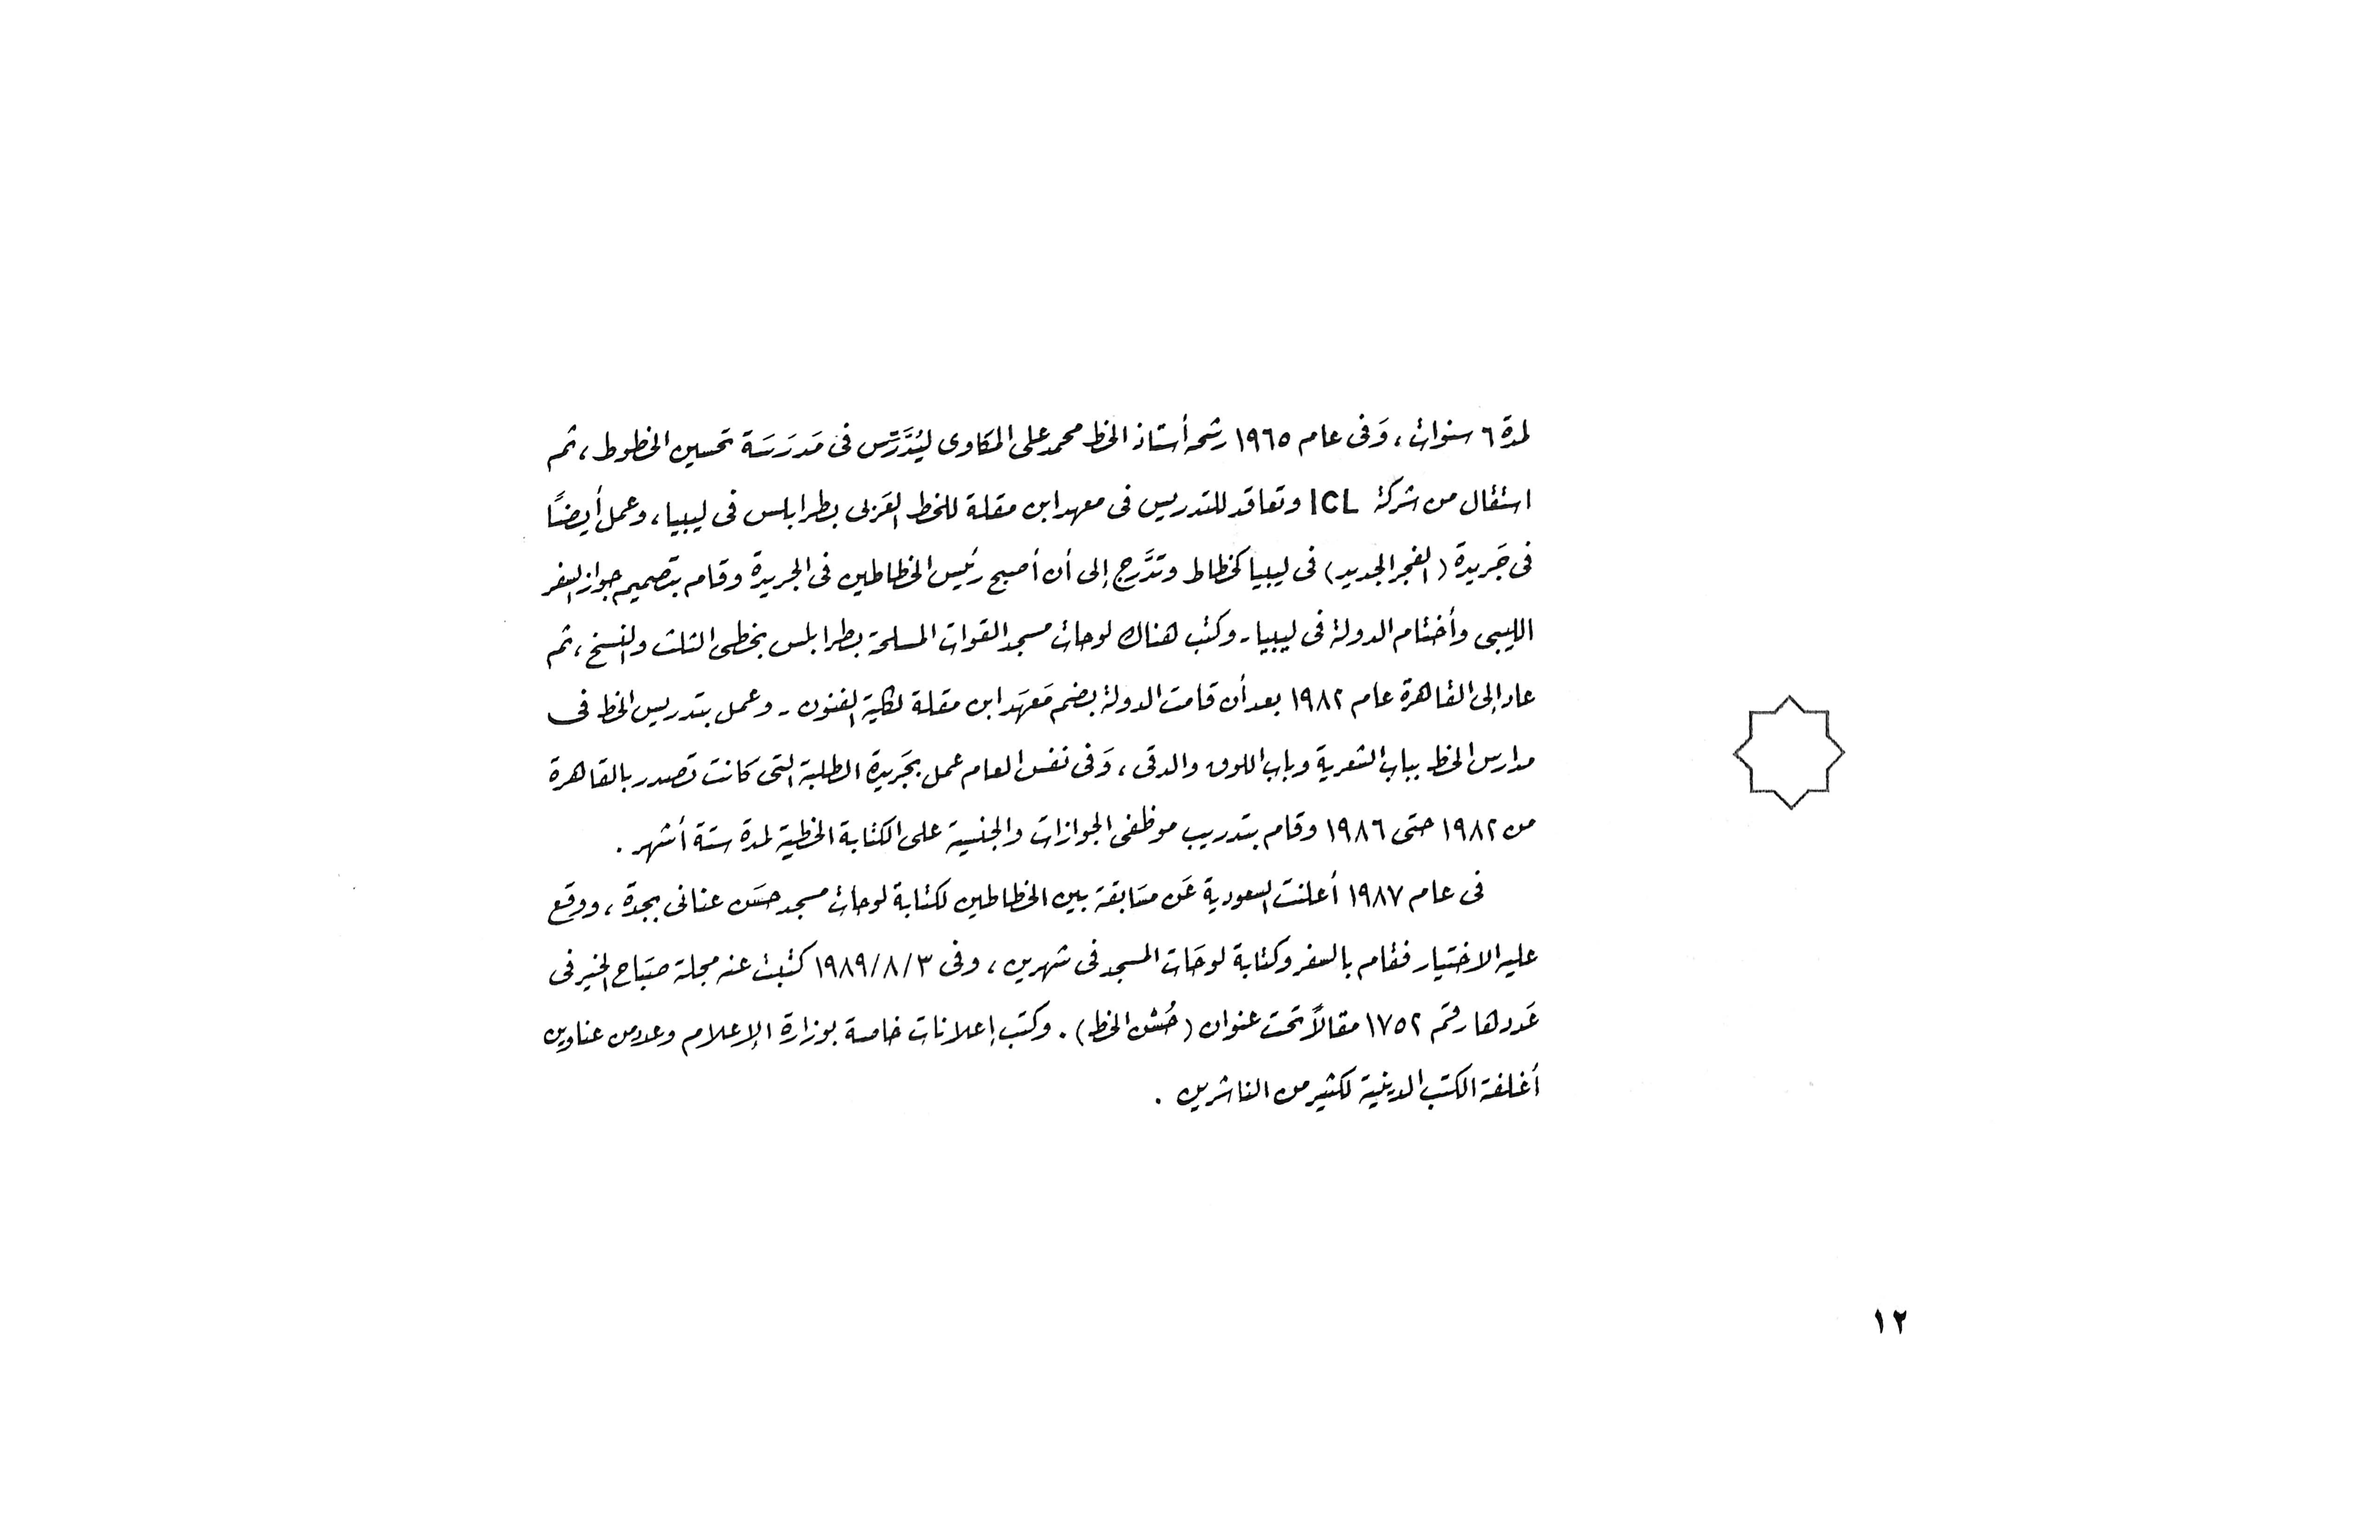 لمدة ٦ سنوات ، وَفى عام ١٩٦٥ رشحه أستاذ الخط محمد على المكاوى ليُدَرِّس فى مَدرَسَة تحسين الخطوط ، ثم
استقال من شركة ICL وتعاقد للتدريس فى معهد ابن مقلة للخط العَربى بطرابلس فى ليبيا ، وعمل أيضًا
فى جَريدة ( الفجر الجديد ) فى ليبيا كخطاط وتدَّرج إلى أن أصبح رئيس الخطاطين فى الجريدة وقام بتصميم جواز السفر
الليبى وأختام الدولة فى ليبيا - وكتب هناك لوحات مسجد القوات المسلحة بطرابلس بخطى الثلث والنسخ ، ثم
عاد إلى القاهرة عام ١٩٨٢ بعد أن قامت الدولة بضم مَعهَد ابن مقلة لكلية الفنون - وعمل بتدريس الخط فى
مدارس الخط بباب الشعرية وباب اللوق والدقى ، وَفى نفس العام عمل بجَريدة الطلبة التى كانت تصدر بالقاهرة
من ١٩٨٢ حتى ١٩٨٦ وقام بتدريب موظفى الجوازات والجنسية على الكتابة الخطية لمدة ستة أشهر .
فى عام ١٩٨٧ أعلنت السعودية عَن مسَابقة بين الخطاطين لكتابة لوحات مسجد حسَن عنانى بجدة ، ووقع
عليه الاختيار فقام بالسفر وكتابة لوحَات المسجد فى شهرين ، وفى ٣/٨/١٩٨٩ كتبت عنه مجلة صبَاح الخير فى
عَددها رقم ١٧٥٢ مقالاً تحت عنوان ( حُسْن الخط ) . وكتب إعلانات خاصة بوزارة الإعلام وعدد من عناوين
أغلفة الكتب الدينية لكثير من الناشرين .
١٢